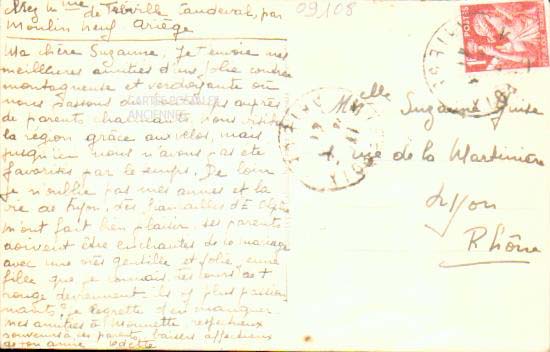 09108
Chez Mme
de Tebville Candeval, par
Moulin neuf Ariège
Ma chère Suzanne, Je t'envoie mes
meilleures amitiés d'une jolie contrée
montagneuse et verdoyante où
nous passons auprès
de parents charmants, nous visitons
la région grâce aux vélos, mais
jusqu'ici nous n'avons pas été
favorisés par le temps. De loin
je n'oublie pas mes amies et la
vie de Lyon, des
m'ont fait bien plaisir, ses parents
doivent être enchantés de ce mariage
avec une très gentille et jolie jeune
fille que je connais, les cours de +
rouge deviennent-ils plus passion
nants? je regrette d'en manquer.
mes amitiés à Monnette, respectueux
souvenirs à tes parents, baisers affectueux
de ton amie Odette
CARTES POSTALES
ANCIENNES
POSTES
1F
Mlle Suzanne Guise
rue de la Martinière
Lyon
Rhône